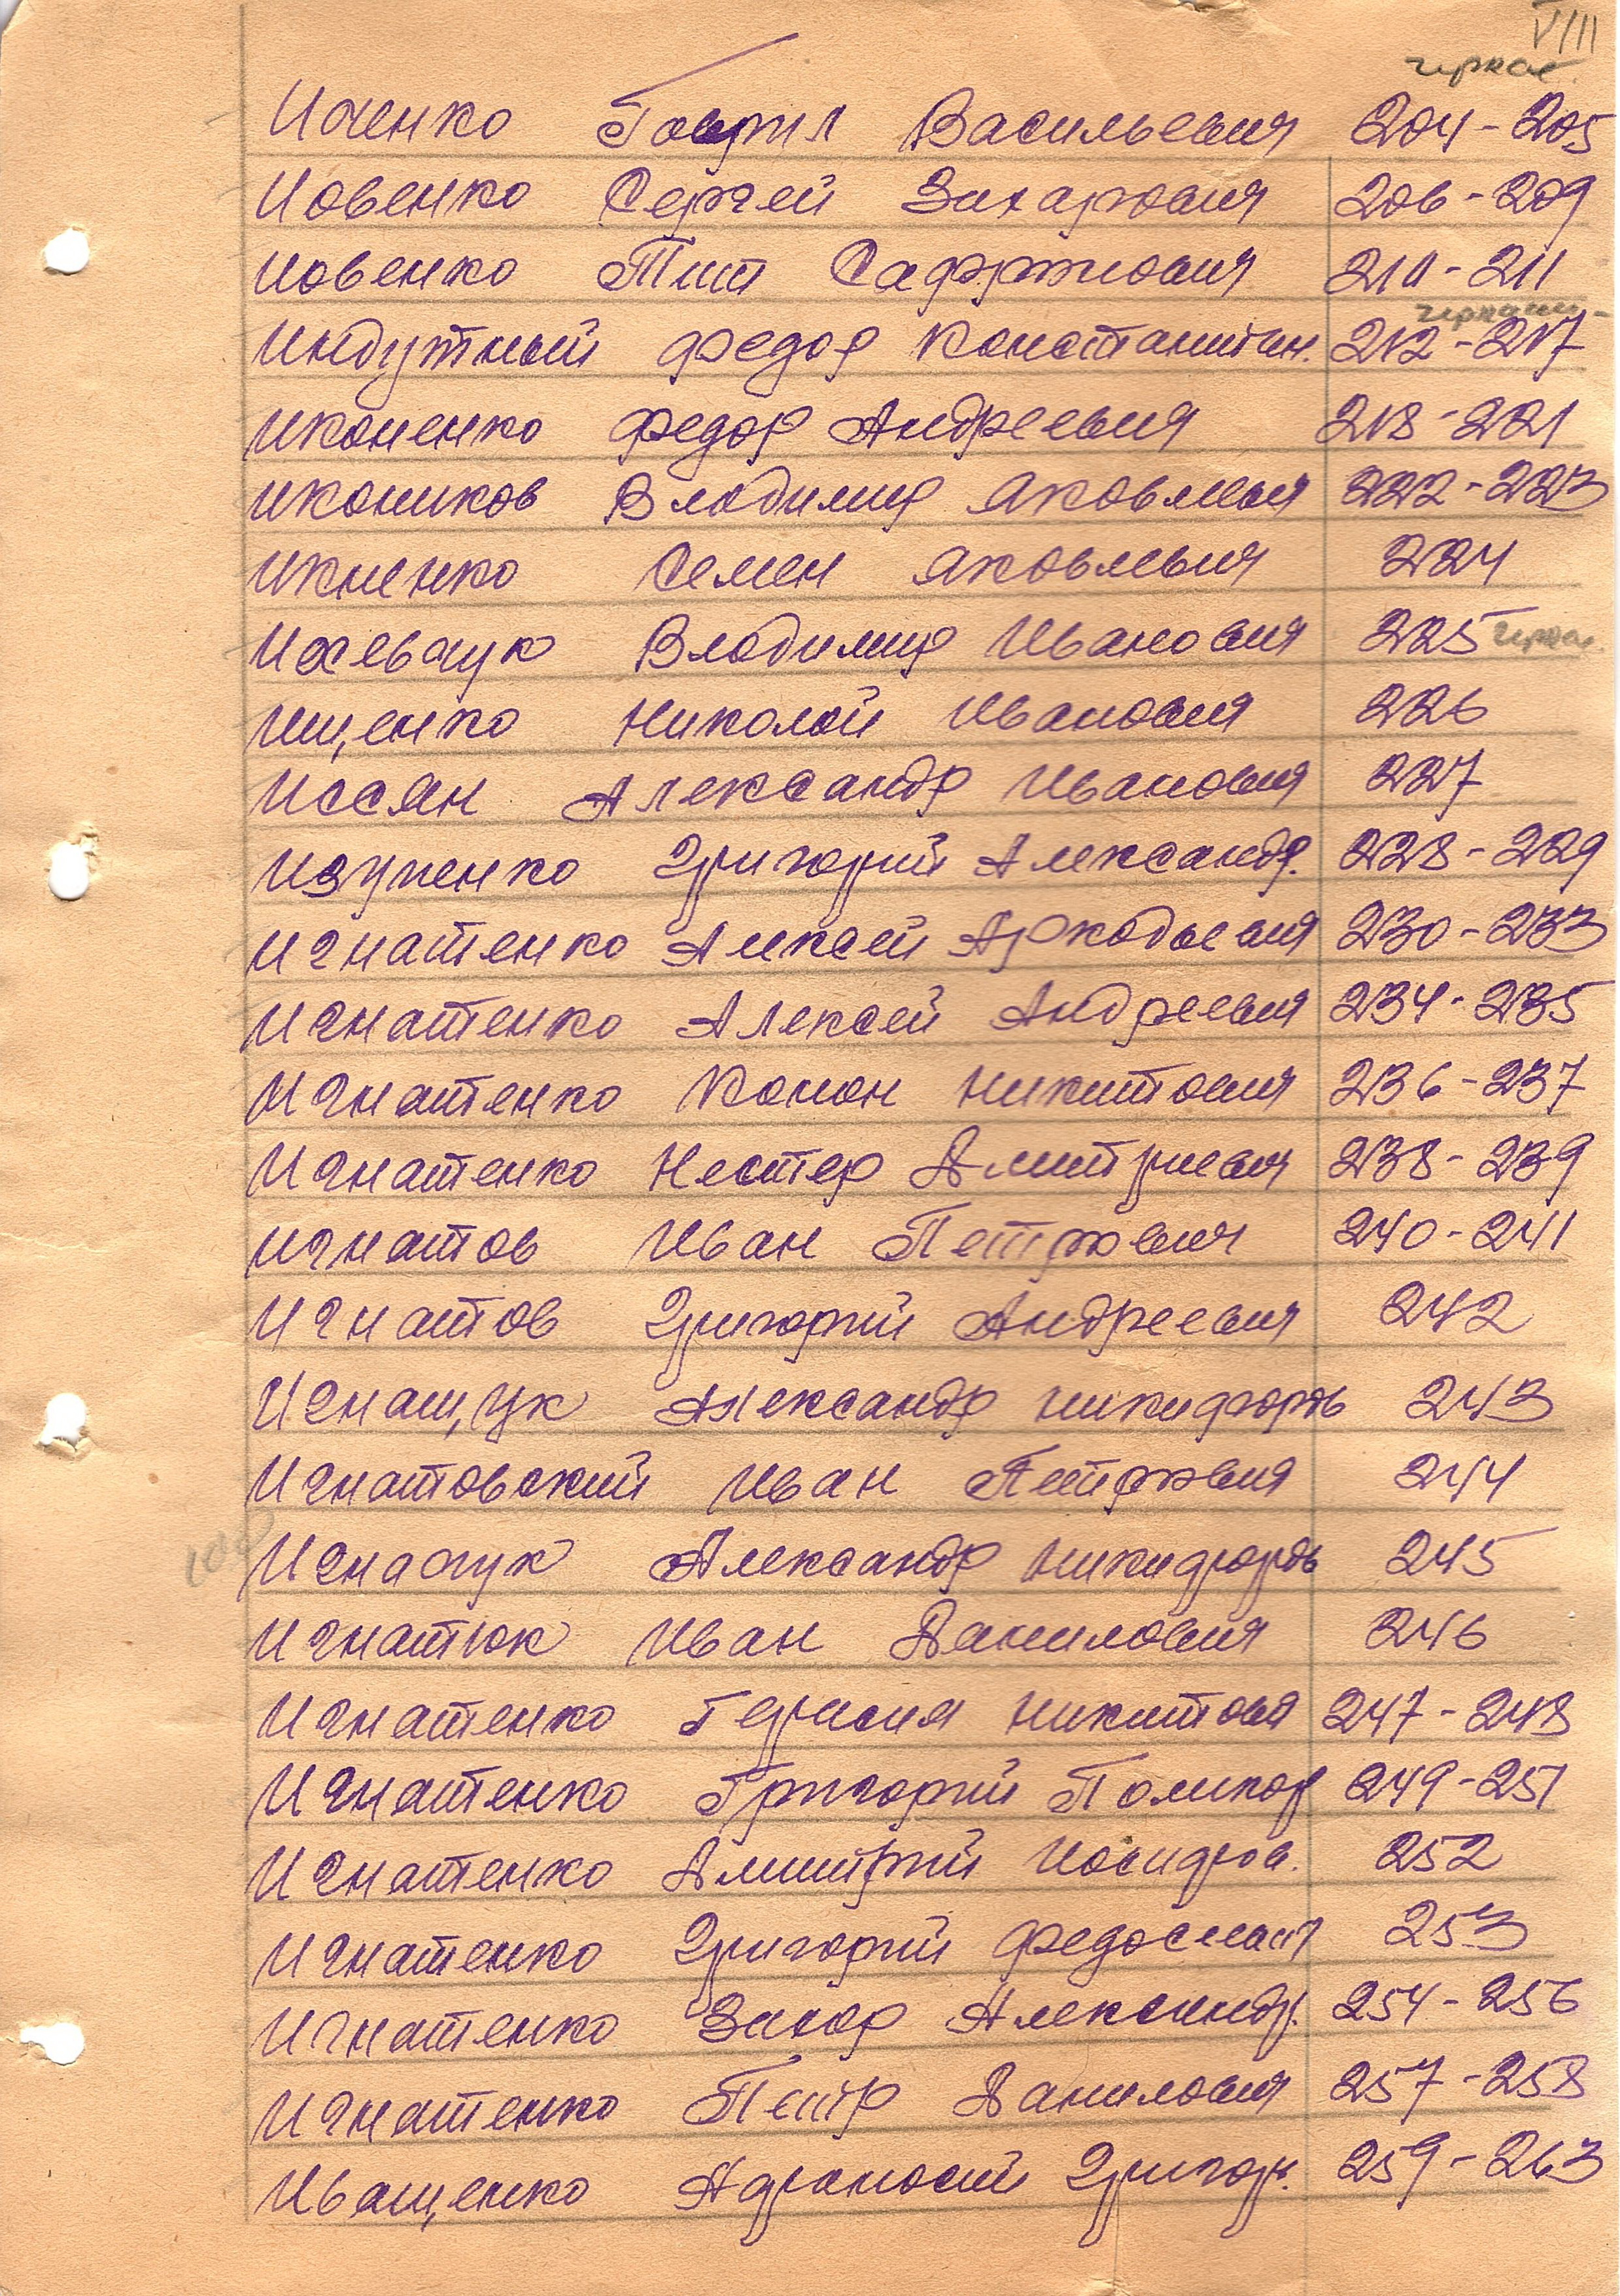 VIII
черкас.
Иченко Гаврил Васильевич 204-205
Иовенко Сергей Захарович 206-209
Иовенко Тит Сафронович 210-211
Индутный Федор Константин. 212-217
Иконенко Федор Андреевич 218-221
Икоников Владимир Яковлевич 222-223
Икненко Семен Яковлевич 224
Ихевчук Владимир Иванович 225 черкас.
Ищенко Николай Иванович 226
Иссян Александр Иванович 227
Изупенко Григорий Александр. 228-229
Игнатенко Алексей Аркадьевич 230-233
Игнатенко Алексей Андреевич 234-235
Игнатенко Конон Никитович 236-237
Игнатенко Нестер Дмитриевич 238-239
Игнатов Иван Петрович 240-241
Игнатов Григорий Андреевич 242
Игнащук Александр Никифоров 243
Игнатовский Иван Петрович 244
Игначук Александр Никифоров 245
Игнатюк Иван Данилович 246
Игнатенко Герасим Никитович 247-248
Игнатенко Григорий Поликар 249-251
Игнатенко Дмитрий Иосифов. 252
Игнатенко Григорий 253
Игнатенко Захар Александр. 254-256
Игнатенко Петр Данилович 257-258
Иващенко Афанасий Григор. 259-263